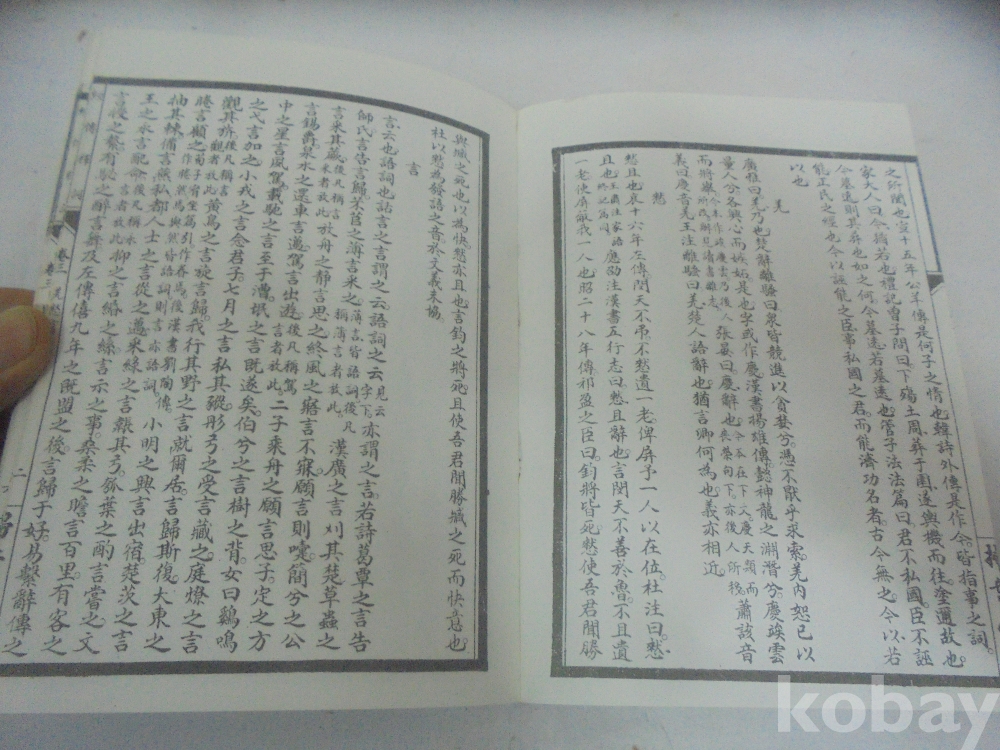 之所聞也宣十五年公羊傳是何子之情也韓詩外傳是作今皆指事之詞
家大人曰今猶若也禮記曾子問曰下殤土周葬于園遂輿機而往塗邇故也
今墓遠則其葬也如之何今墓遠若墓遠也管子法法篇曰君不私國臣不誣
能正民之經也今以誣能之臣事私國之君而能濟功名者古今無之今以若
以也
羌
廣雅曰羌乃也楚辭離騷曰衆皆競進以貪婪兮憑不猒乎求索羌內恕己以
量人兮各興心而嫉妬是也字或作慶漢書揚雄傳懿神龍之淵潛兮慶竢雲
而將舉
張晏曰慶辭也
蕭該音
義曰慶音羌王注離騷曰羌楚人語辭也猶言卿何為也義亦相近
憖
憖且也哀十六年左傳閔天不弔不憖遺一老俾屏予一人以在位杜注曰憖
且也
應劭注漢書五行志曰憖且辭也言閔天不善於魯不且遺
一老使屏蔽我一人也昭二十八年傳祁盈之臣曰鈞將皆死憖使吾君聞勝
與臧之死也以為快憖亦且也言鈞之將死且使吾君聞勝臧之死而快意也
杜以憖為發語之音於文義未協
言
言云也語詞也話言之言謂之云語詞之云亦謂之言若詩葛覃之言告
師氏言告言歸芣苢之薄言采之
漢廣之言刈其楚草蟲之
言采其蕨
柏舟之靜言思之終風之寤言不寐願言則嚏簡兮之公
言錫爵泉水之還車言邁駕言出遊
二子乘舟之願言思子定之方
中之星言夙駕載馳之言至于漕氓之言既遂矣伯兮之言樹之背女曰雞鳴
之弋言加之小戎之言念君子七月之言私其豵彤弓之受言藏之庭燎之言
觀其旂
黃鳥之言旋言歸我行其野之言就爾居言歸斯復大東之
睠言顧之
小明之興言出宿楚茨之言
抽其棘
都人士之言從之邁采綠之言韔其弓瓠葉之酌言嘗之文
王之永言配命
抑之言緡之絲言示之事桑柔之瞻言百里有客之
言授之縶有駜之醉言舞及左傳僖九年之既盟之後言歸于好易繫辭傳之
kobay